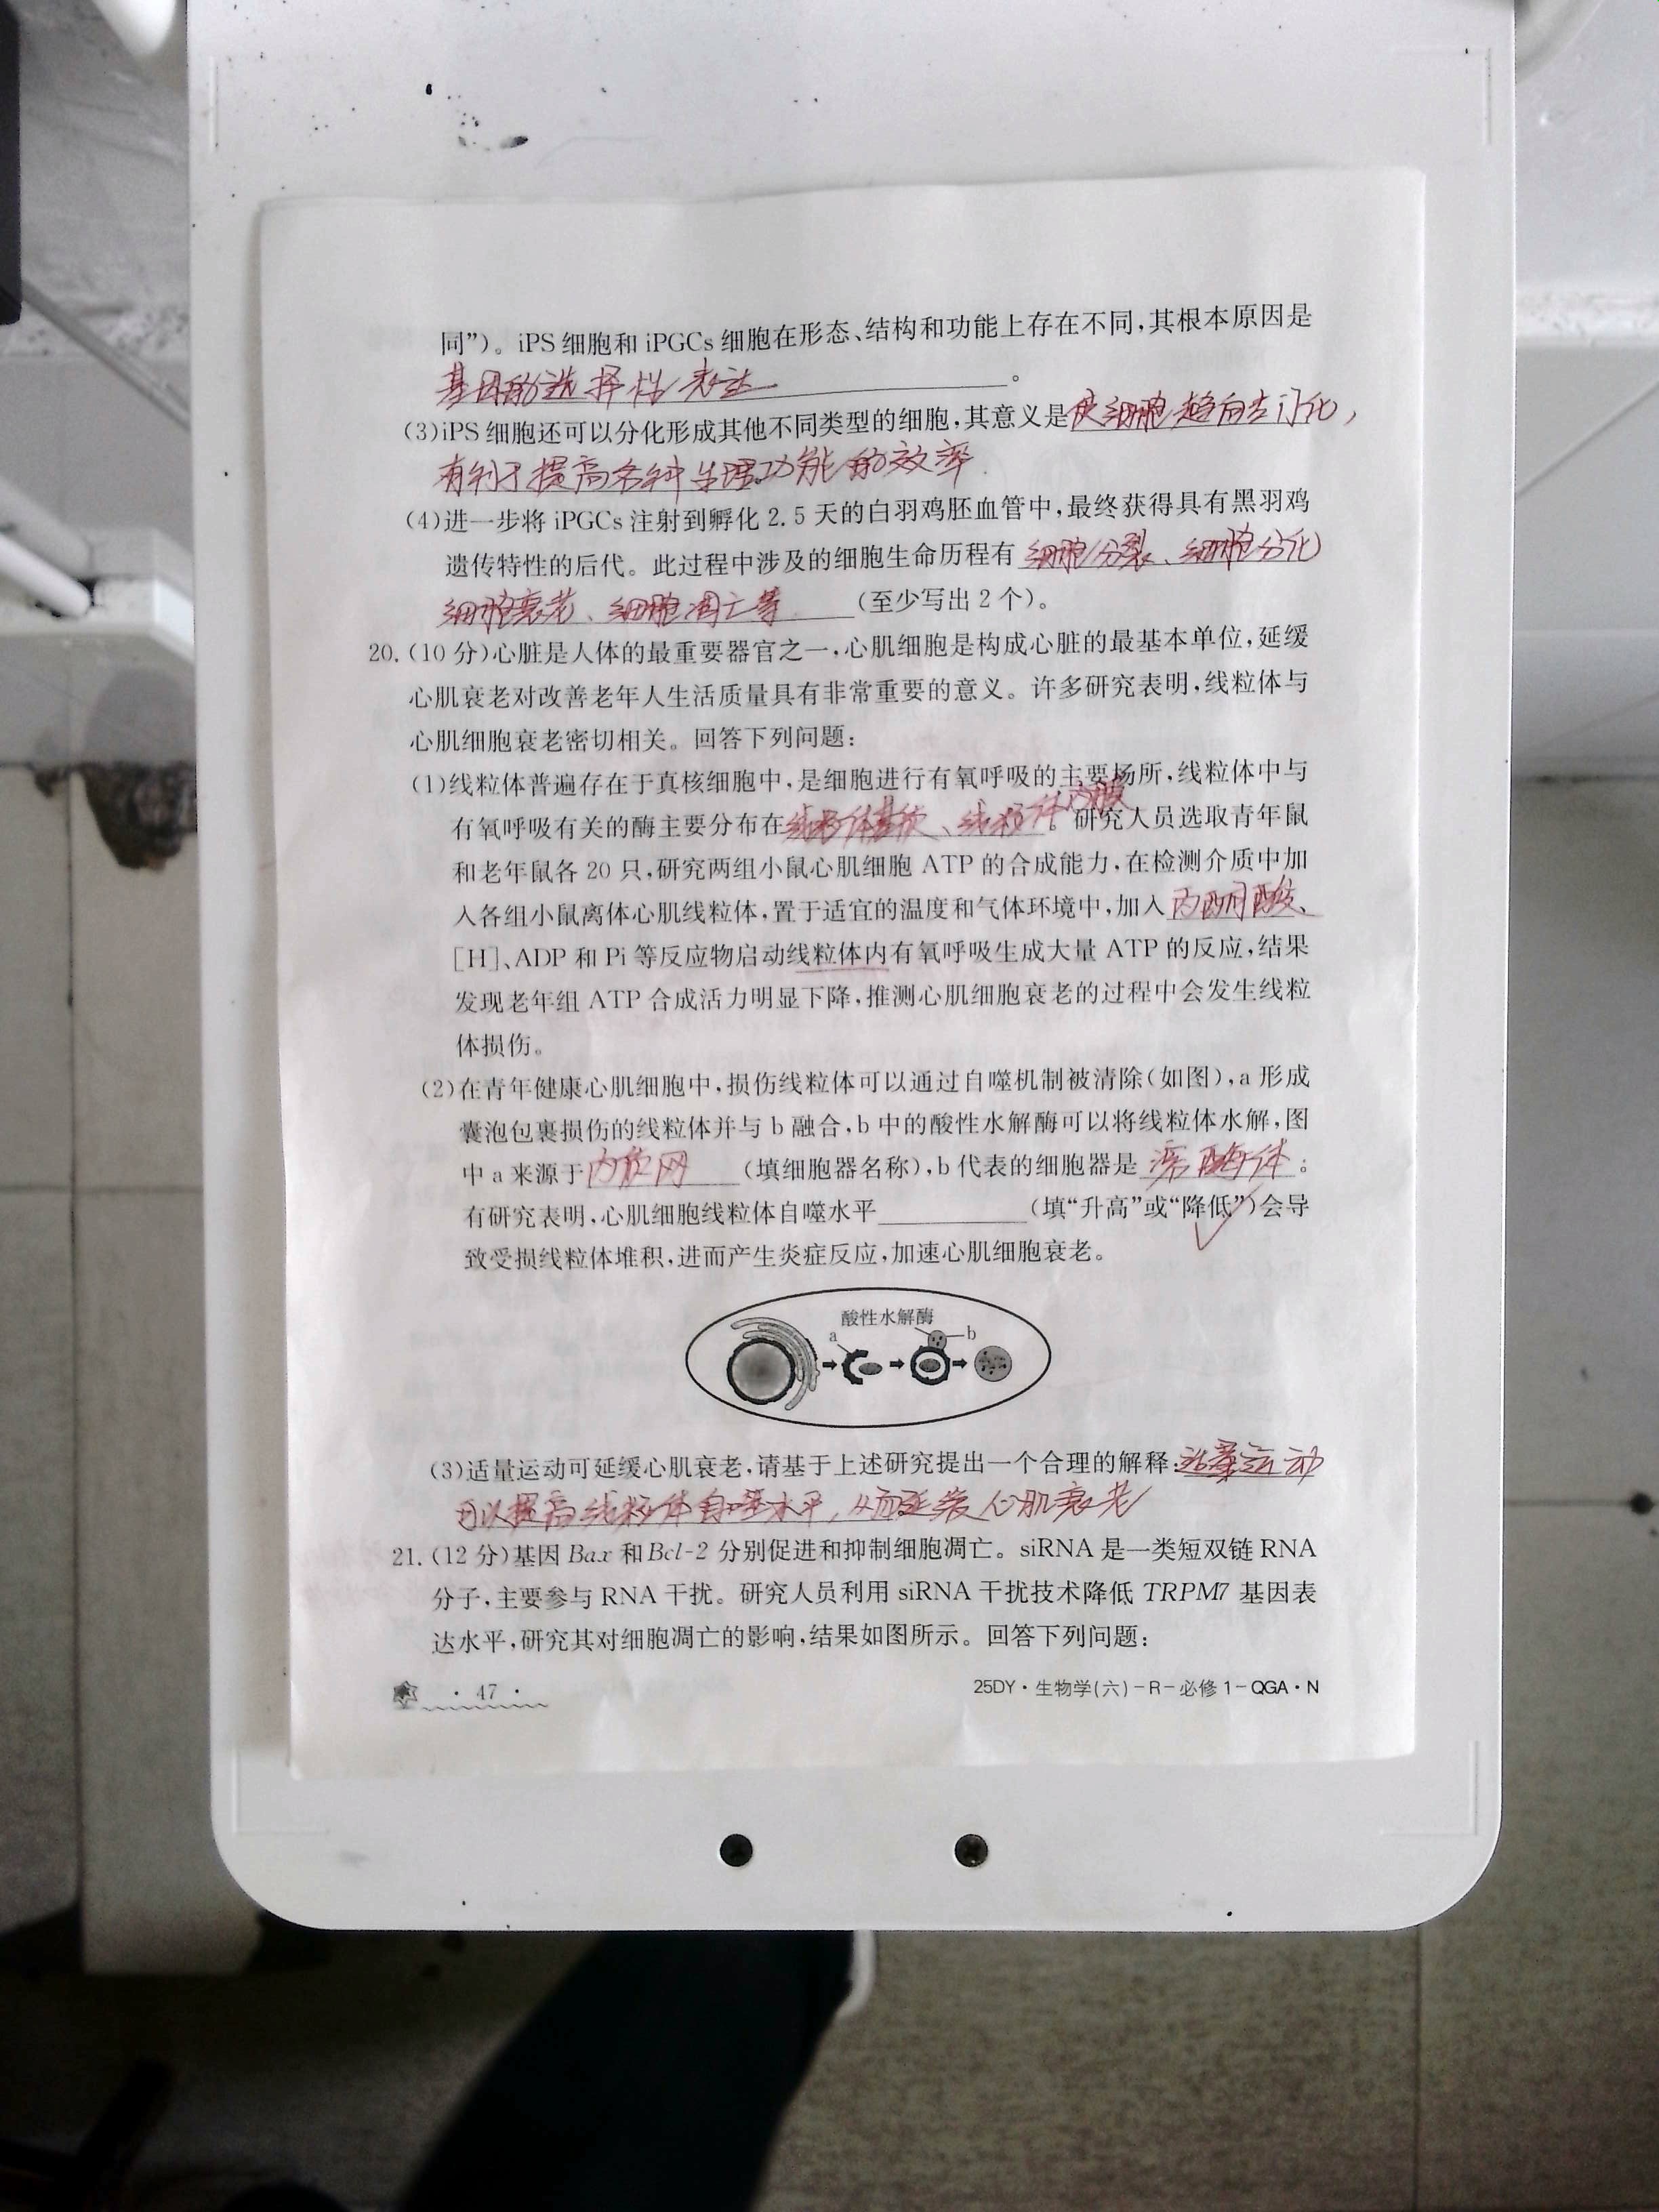 同”)。iPS细胞和iPGCs细胞在形态、结构和功能上存在不同,其根本原因是
基因的选择性表达。
(3)iPS细胞还可以分化形成其他不同类型的细胞,其意义是使细胞趋向专门化,
有利于提高各种生理功能的效率.
(4)进一步将iPGCs注射到孵化2.5天的白羽鸡胚血管中,最终获得具有黑羽鸡
遗传特性的后代。此过程中涉及的细胞生命历程有细胞分裂、细胞分化
细胞衰老、细胞凋亡等(至少写出2个)。
20.(10分)心脏是人体的最重要器官之一,心肌细胞是构成心脏的最基本单位,延缓
心肌衰老对改善老年人生活质量具有非常重要的意义。许多研究表明,线粒体与
心肌细胞衰老密切相关。回答下列问题:
(1)线粒体普遍存在于真核细胞中,是细胞进行有氧呼吸的主要场所,线粒体中与
有氧呼吸有关的酶主要分布在线粒体基质、线粒体内膜。研究人员选取青年鼠
和老年鼠各20只,研究两组小鼠心肌细胞ATP的合成能力,在检测介质中加
入各组小鼠离体心肌线粒体,置于适宜的温度和气体环境中,加入丙酮酸、
[H]、ADP和Pi等反应物启动线粒体内有氧呼吸生成大量ATP的反应,结果
发现老年组ATP合成活力明显下降,推测心肌细胞衰老的过程中会发生线粒
体损伤。
(2)在青年健康心肌细胞中,损伤线粒体可以通过自噬机制被清除(如图),a形成
囊泡包裹损伤的线粒体并与b融合,b中的酸性水解酶可以将线粒体水解,图
中a来源于内质网(填细胞器名称),b代表的细胞器是溶酶体;
有研究表明,心肌细胞线粒体自噬水平________(填“升高”或“降低”)会导
致受损线粒体堆积,进而产生炎症反应,加速心肌细胞衰老。
酸性水解酶
a
b
(3)适量运动可延缓心肌衰老,请基于上述研究提出一个合理的解释:适量运动
可以提高线粒体自噬水平,从而延缓心肌衰老
21.(12分)基因Bax和Bcl-2分别促进和抑制细胞凋亡。siRNA是一类短双链RNA
分子,主要参与RNA干扰。研究人员利用siRNA干扰技术降低TRPM7基因表
达水平,研究其对细胞凋亡的影响,结果如图所示。回答下列问题:
· 47 ·
25DY·生物学(六)-R-必修1-QGA·N